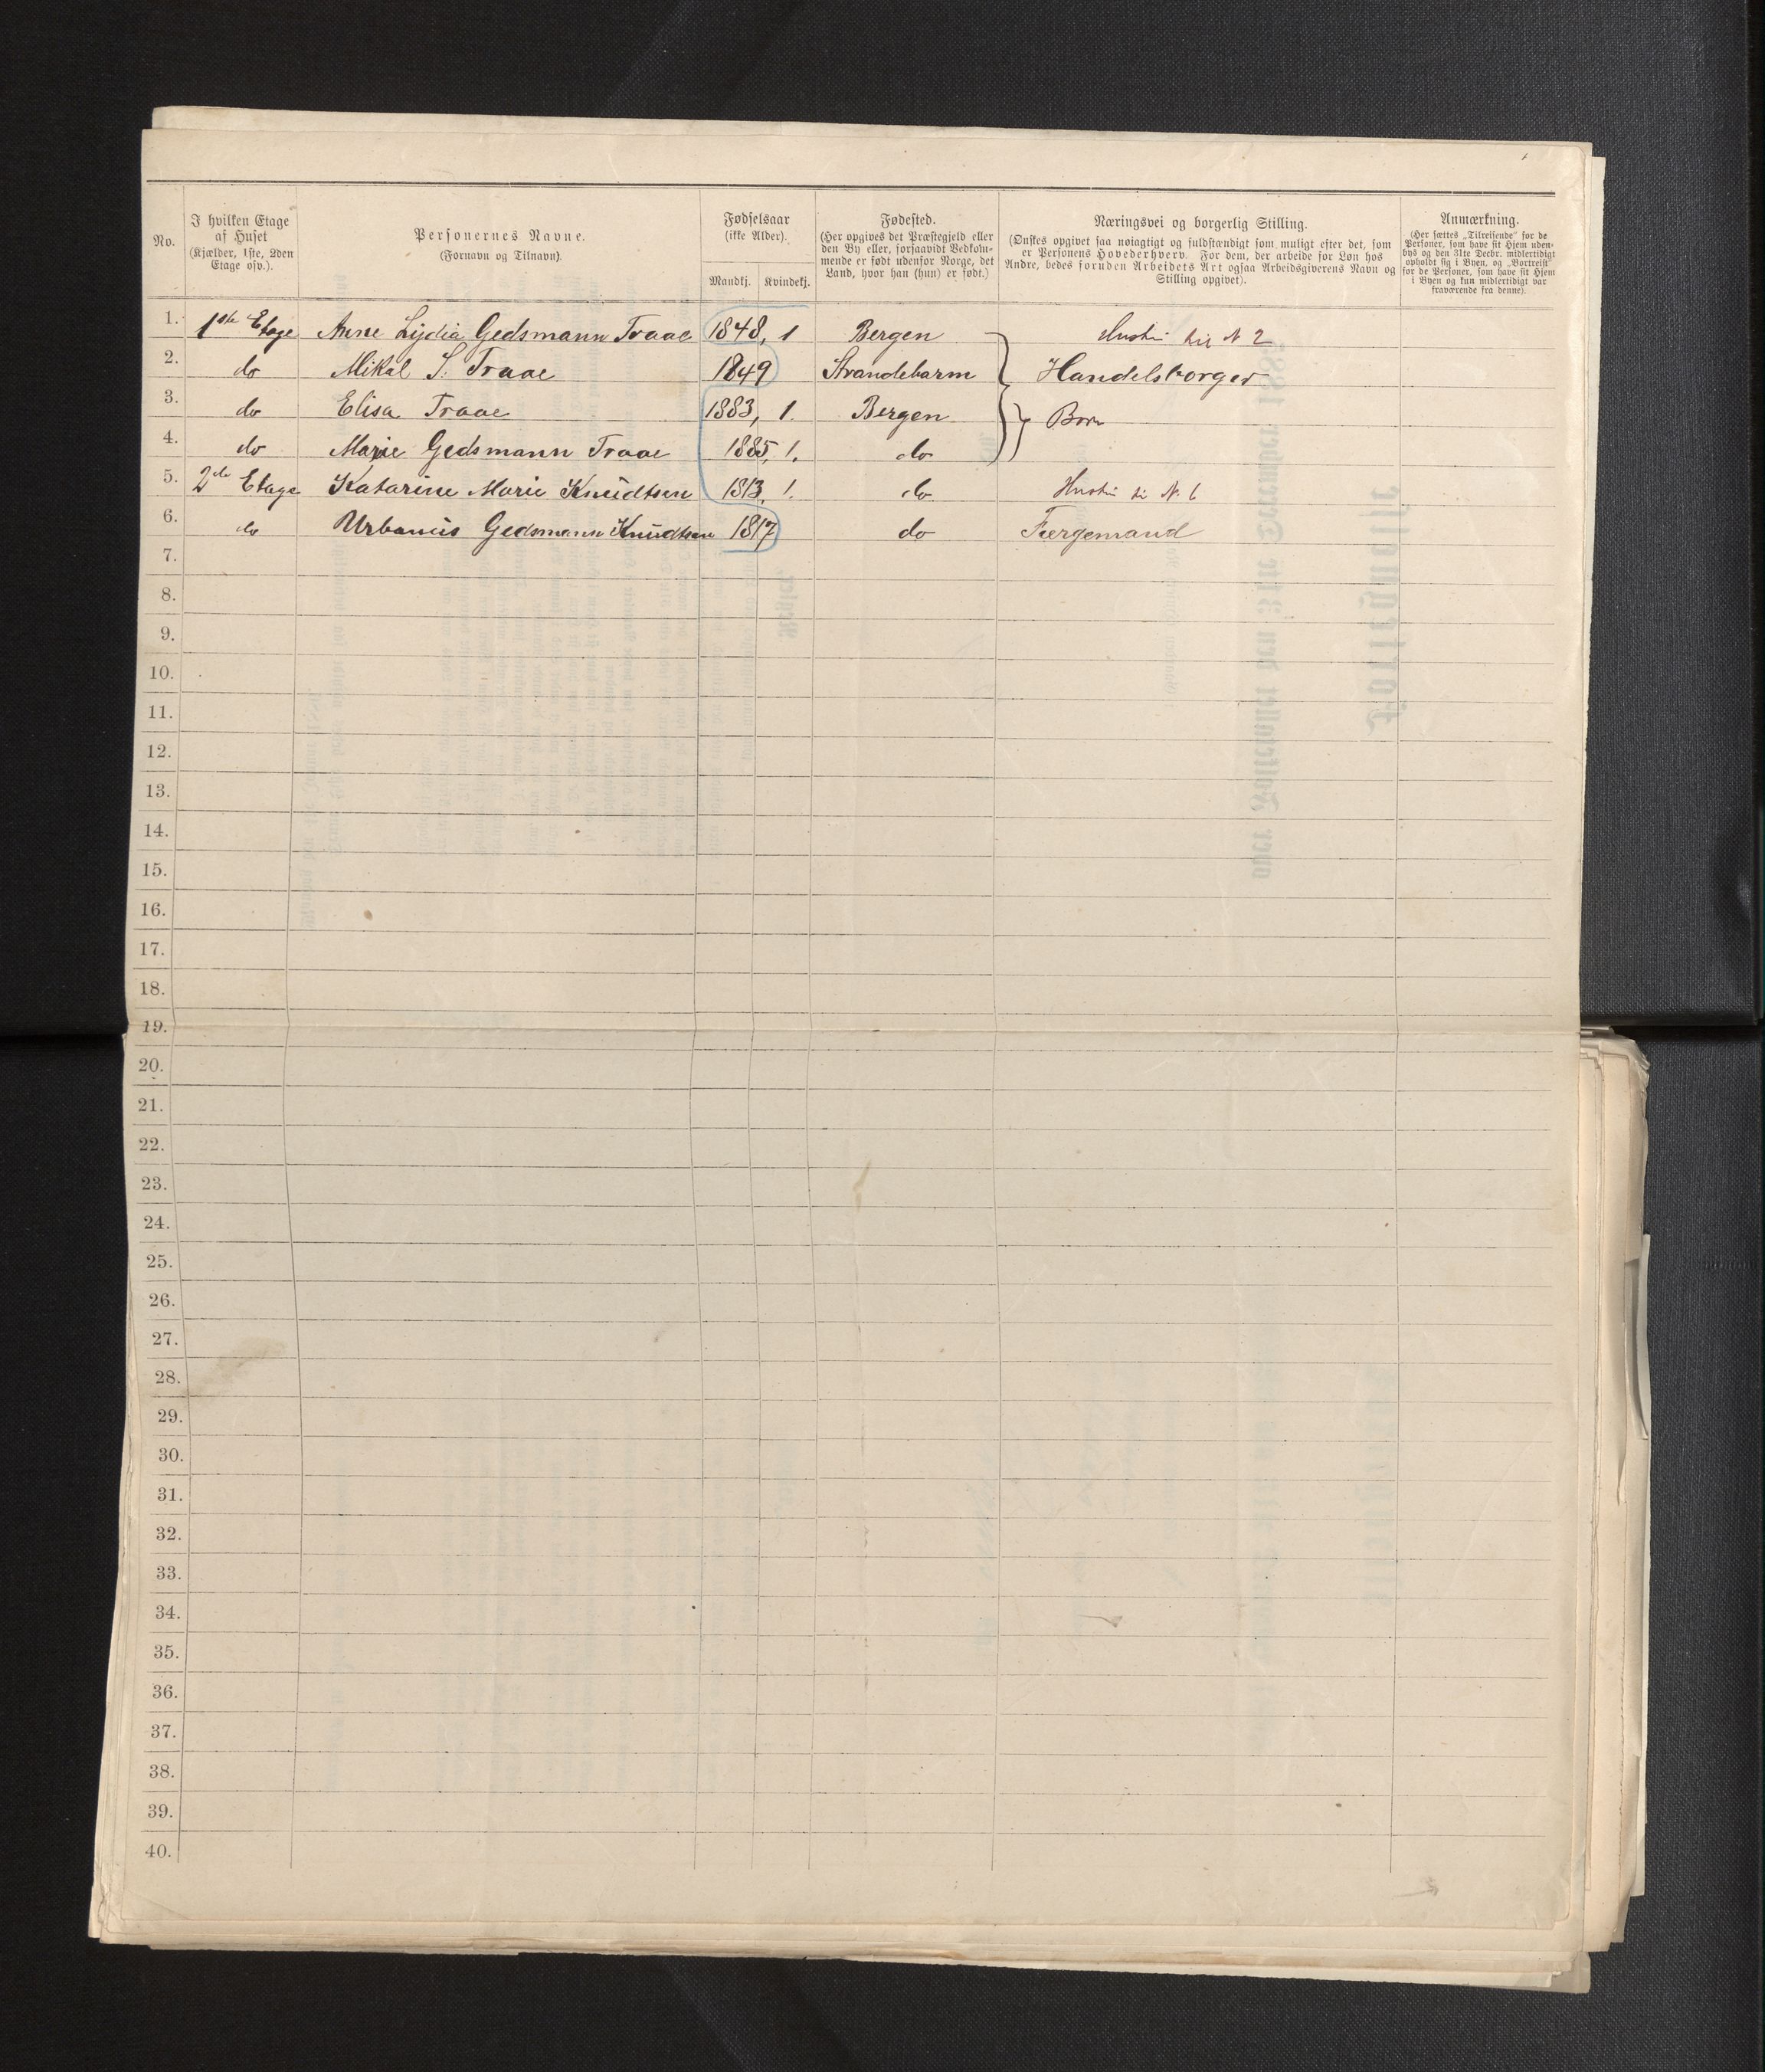 No.
I hvilken Etage
af Huset
(Kjælder, 1ste, 2den
Etage osv.).
Personernes Navne.
(Fornavn og Tilnavn).
Fødselsaar
(ikke Alder).
Mandkj. Kvindekj.
Fødested.
(Her opgives det Præstegjeld eller
den By eller, forsaavidt Vedkom-
mende er født udenfor Norge, det
Land, hvor han (hun) er født.)
Næringsvei og borgerlig Stilling.
(Ønskes opgivet saa nøiagtigt og fuldstændigt som muligt efter det, som
er Personens Hovederhverv. For dem, der arbeide for Løn hos
Andre, bedes foruden Arbeidets Art ogsaa Arbeidsgiverens Navn og
Stilling opgivet).
Anmærkning.
(Her sættes „Tilreisende“ for de
Personer, som have sit Hjem uden-
bys og den 31te Decbr. midlertidigt
opholdt sig i Byen, og „Bortreist“
for de Personer, som have sit Hjem
i Byen og kun midlertidigt var
fraværende fra denne).
1. 1ste Etage Anne Lydia Gedsmann Traae 1848, 1 Bergen Hustru til N 2
2. do Mikal S. Traae 1849 Strandebarm Handelsborger
3. do Elisa Traae 1883, 1. Bergen Born
4. do Marie Gedsmann Traae 1885, 1. do
5. 2de Etage Katarine Marie Knudtsen 1813, 1. do Hustru ti N. 6
6. do Urbanus Gedsmann Knudtsen 1817 do Færgemand
7.
8.
9.
10.
11.
12.
13.
14.
15.
16.
17.
18.
19.
20.
21.
22.
23.
24.
25.
26.
27.
28.
29.
30.
31.
32.
33.
34.
35.
36.
37.
38.
39.
40.